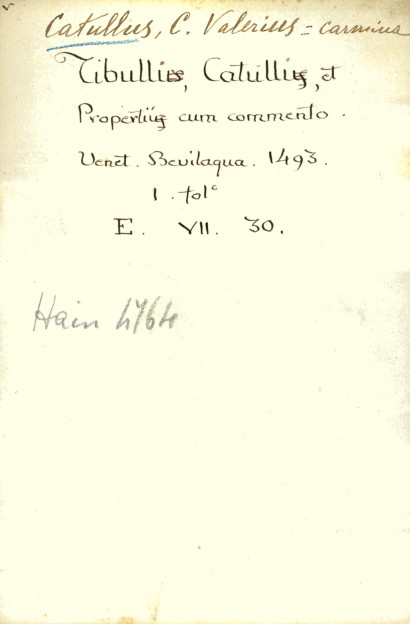 Catullus, C. Valerius = carmina
Tibullus, Catullus, et
Propertius cum commento.
Venet. Bevilaqua. 1493.
1. folº
E. VII. 30.
Hain 4764